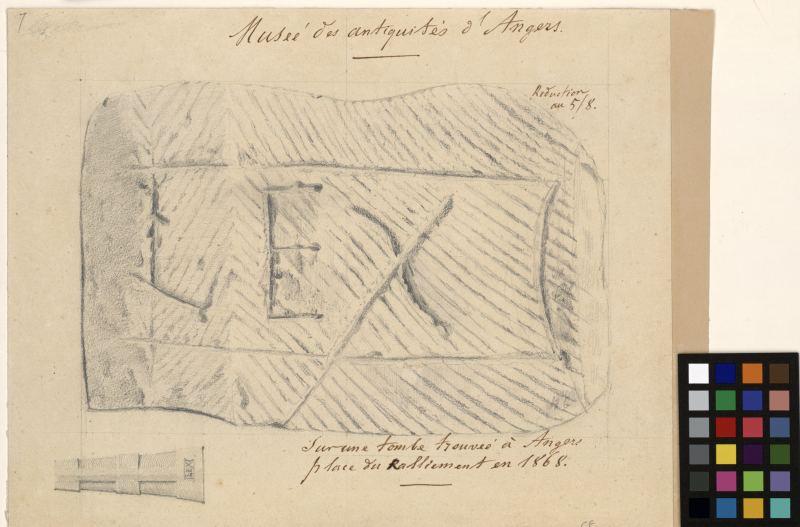 Museé des antiquités d'Angers.
Reduction
au 5/8.
LEX
Sur une tombe trouveé à Angers
place du Ralliement en 1868.
LEX